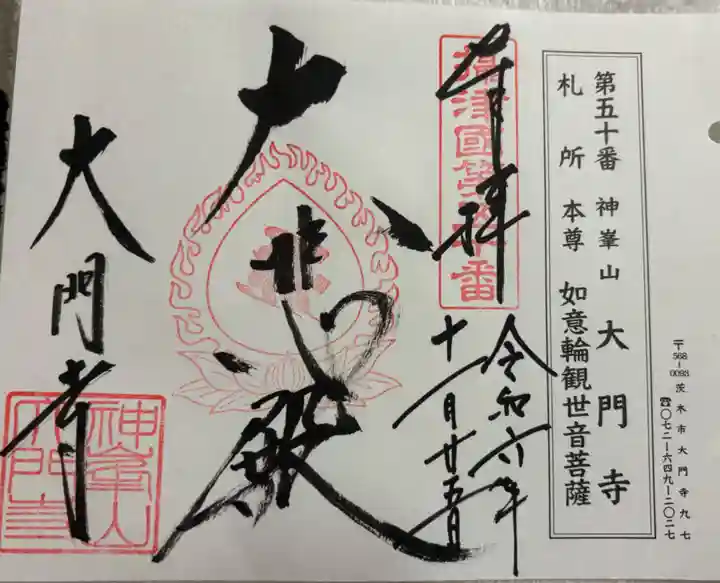 第五十番 神峯山 大門寺
札所本尊 如意輪観世音菩薩
〒568-0093 茨木市大門寺九七
☎〇七二ー六四九ー二〇二七
奉拝
令和六年
十一月廿五日
大悲殿
大門寺
神峯山
大門寺